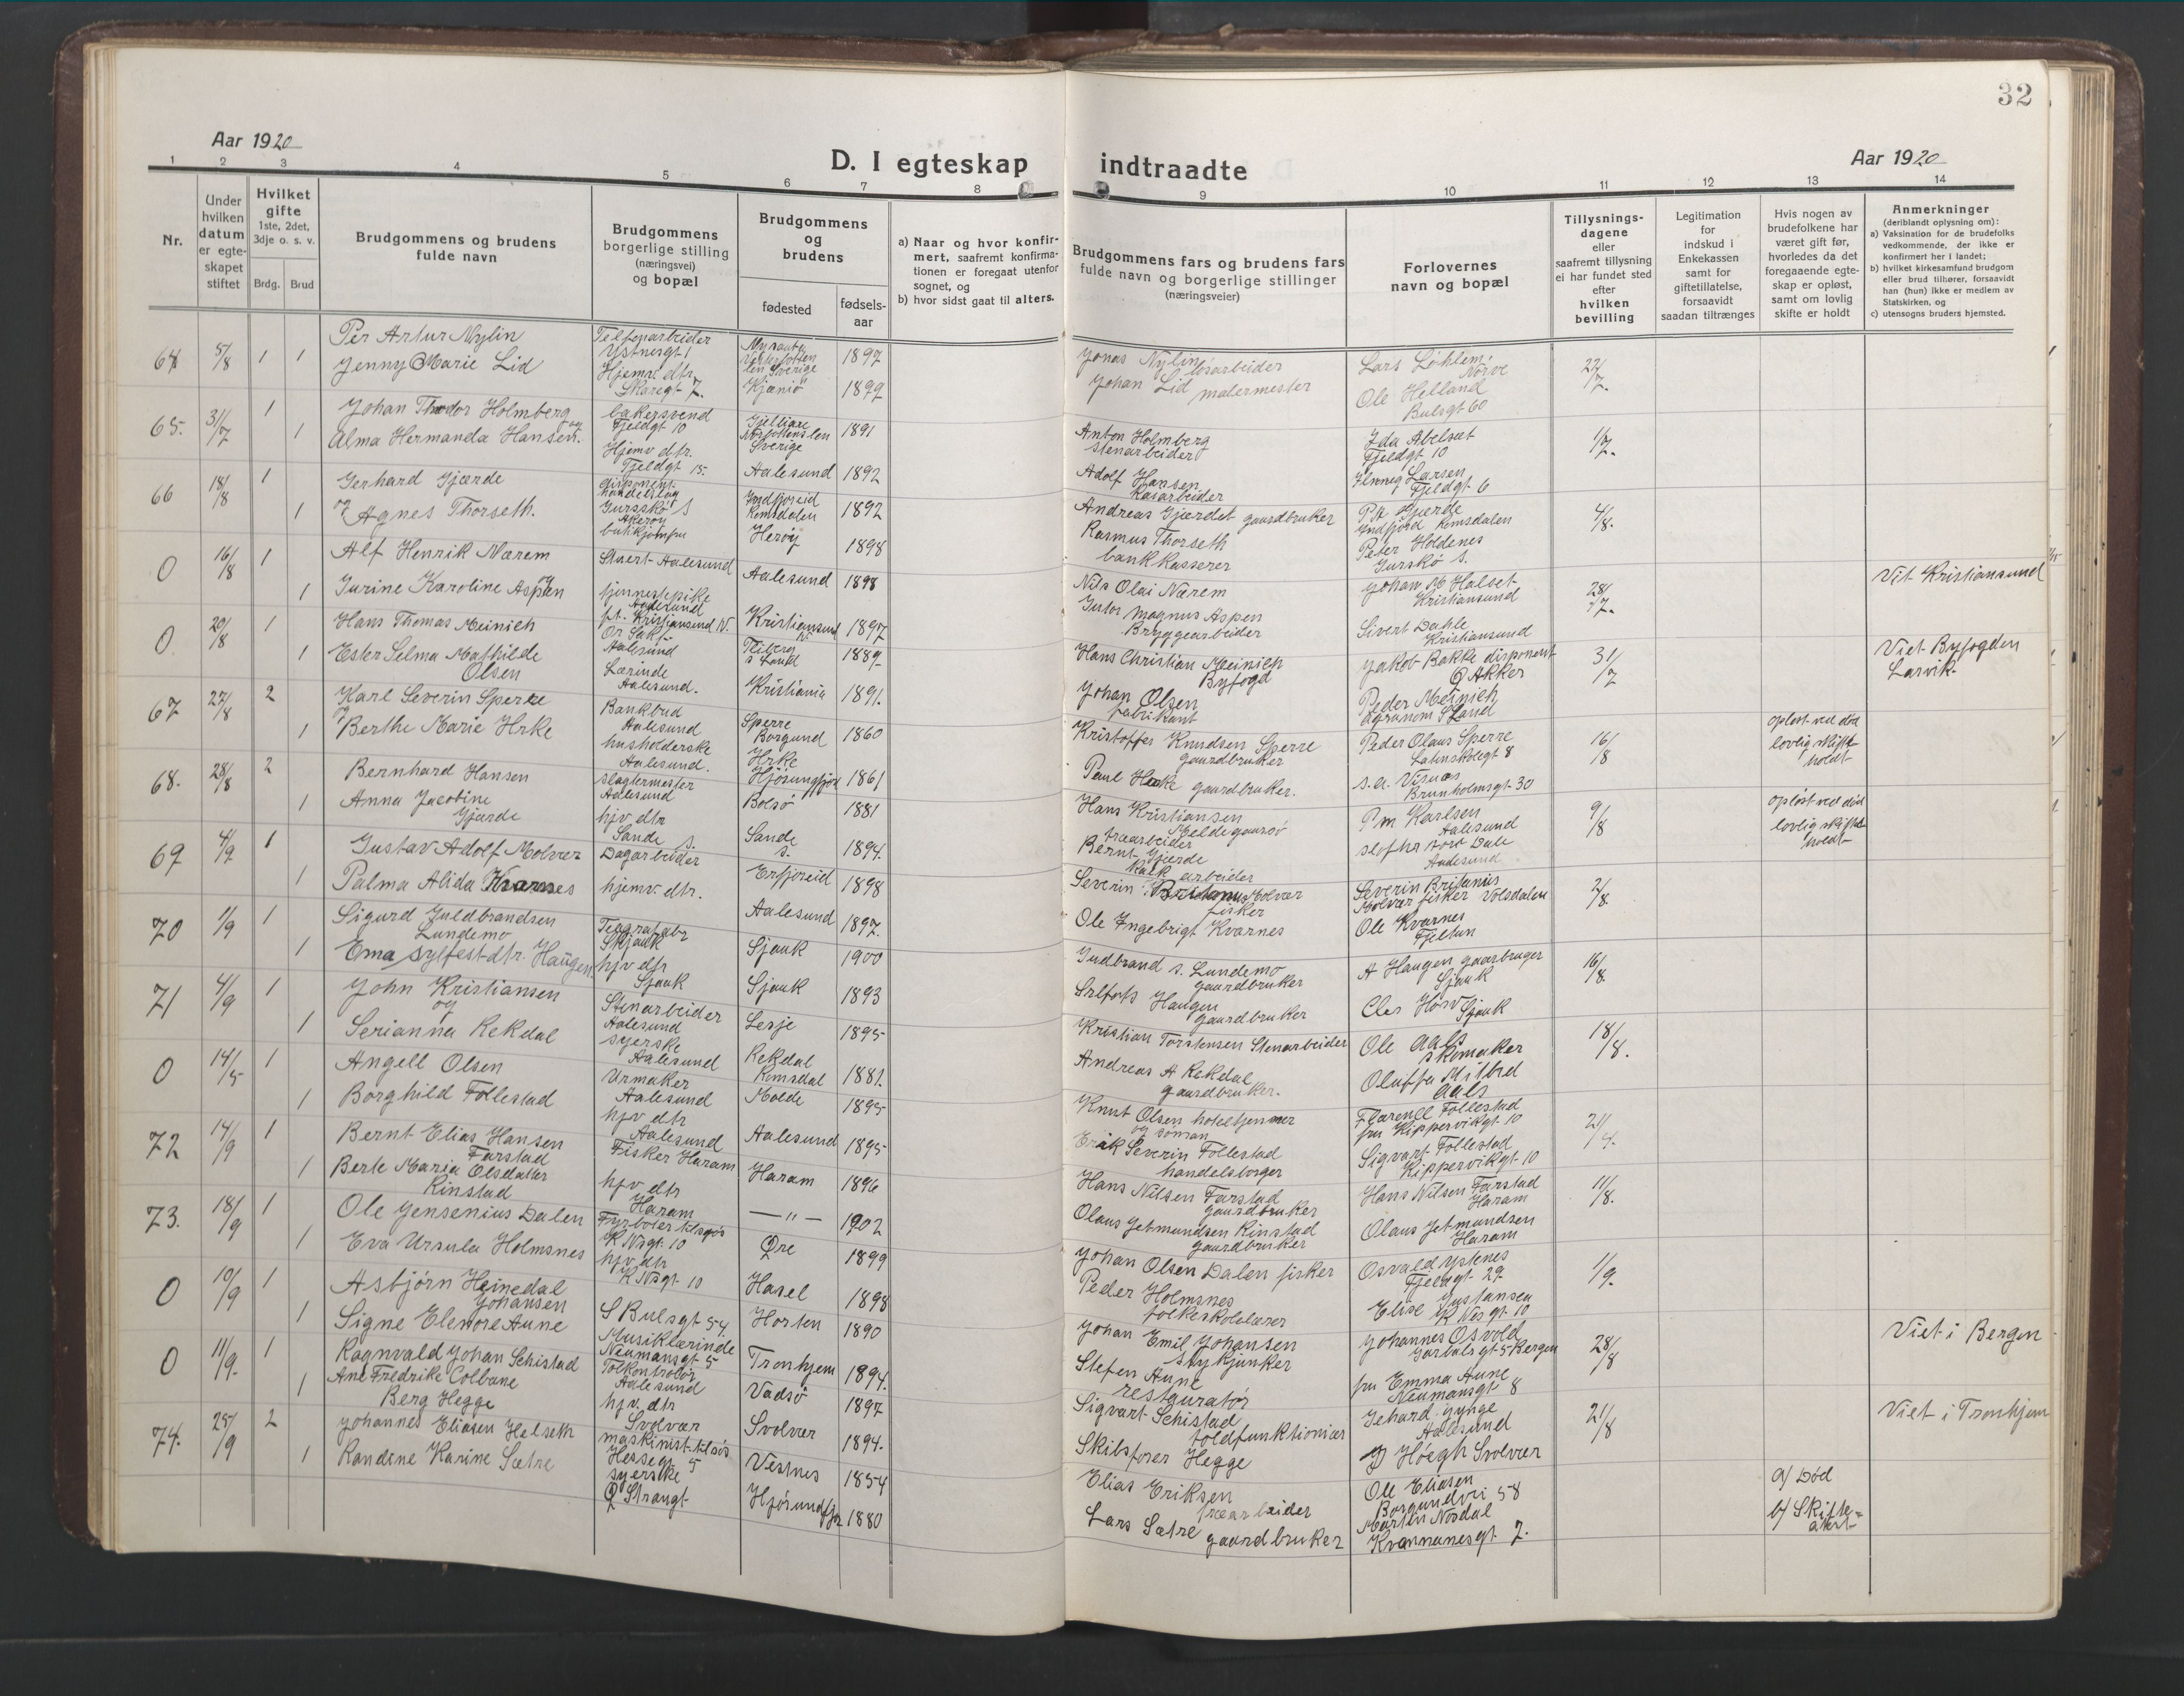 32
Aar 1920
D. I egteskap indtraadte
Aar 1920
1 2 3 4 5 6 7 8 9 10 11 12 13 14
Nr.
Under hvilken datum er egteskapet stiftet
Hvilket gifte
1ste, 2det, 3dje o. s. v.
Brdg. Brud
Brudgommens og brudens fulde navn
Brudgommens borgerlige stilling (næringsvei) og bopæl
Brudgommens og brudens
fødested
fødsels-aar
a) Naar og hvor konfirmert, saafremt konfirmationen er foregaat utenfor sognet, og
b) hvor sidst gaat til alters.
Brudgommens fars og brudens fars fulde navn og borgerlige stillinger (næringsveier)
Forlovernes navn og bopæl
Tillysningsdagene eller saafremt tillysning ei har fundet sted efter hvilken bevilling
Legitimation for indskud i Enkekassen samt for giftetillatelse, forsaavidt saadan tiltrænges
Hvis nogen av brudefolkene har været gift før, hvorledes da det foregaaende egteskap er opløst, samt om lovlig skifte er holdt
Anmerkninger
(deriblandt oplysning om):
a) Vaksination for de brudefolks vedkommende, der ikke er konfirmert her i landet;
b) hvilket kirkesamfund brudgom eller brud tilhører, forsaavidt han (hun) ikke er medlem av Statskirken, og
c) utensogns bruders hjemsted.
64 5/8 1 1 Per Artur Nylin
Jenny Marie Lid
Hjemv. dtr. Skaregt 7.
Sverige 1897
1899
Jonas Nylin løsarbeider
Johan Lid malermester
Lars Løhlem Nørve
Ole Helland Bulsgt 60
22/7.
65. 31/7 1 1 Johan Thodor Holmberg og
Alma Hermanda Hansen.
bakersvend Fjeldgt 10
Hjemv dtr. Fjeldgt 15.
Sverige 1891
Aalesund 1892
Anton Holmberg stenarbeider
Adolf Hansen
Ida Abelset Fjeldgt 10
Larsen Fjeldgt 6
1/7.
66 18/8 1 1 Gerhard Gjærde
og Agnes Thorseth.
Romsdalen 1892
Herøy 1898
Andreas Gjærdet gaardbruker
Rasmus Thorseth bankkasserer
Gjerde Romsdalen
Peter Holdenes Gurskø S.
4/8.
0 16/8 1 1 Alf Henrik Nærem
og Jurine Karoline Aspen
Stuert Aalesund
tjenestepike
pt. Kristiansund N.
Aalesund 1898
Kristiansund N 1897
Nils Olai Nærem
Magnus Aspen Bryggearbeider
Halset Kristiansund
Sivert Dahle Kristiansund
28/7.
Vit Kristiansund
0. 20/8 1 1 Hans Thomas Meinich
Ester Selma Mathilde Olsen
Or Sakf. Aalesund
Lærinde Aalesund.
S Land 1889
Kristiania 1891.
Hans Christian Meinich Byfogd
Johan Olsen fabrikant
Jakob Bakke disponent
Peder Meinich agronom S Land
31/7
Viet Byfogden Larvik.
67 27/8 2 1 Karl Severin Sperre
og Berthe Marie Hrke
Bankbud Aalesund
husholderske Aalesund.
Sperre Borgund 1860
1861
Kristoffer Knudsen Sperre gaardbruker
gaardbruker.
Peder Olaus Sperre Latinskolegt 8
Brunholmsgt 30
16/8
opløst ved død lovlig skifte holdt
68. 28/8 2 1 Bernhard Hansen
Anna Jacobine Gjærde
slagtermester Aalesund
hjv dtr Sande S.
Bolsø 1881
Sande S. 1894.
Hans Kristiansen
Bernt Gjærde
Karlsen Aalesund
Dale Aalesund
9/8
opløst ved død lovlig skifte holdt
69 4/9 1 1 Gustav Adolf Molvær
Palma Alida Kvarnes
Dagarbeider
hjemv. dtr.
1898
Aalesund 1897.
Severin Molvær fisker
Ole Ingebrigt Kvarnes
Severin Britanus Molvær fisker Volsdalen
Ole Kvarnes
2/8.
70 1/9 1 1 Sigurd Guldbrandsen Lundemo
Ema Sylfestdtr. Haugen.
Skjaak
hjv dtr Sjaak
Sjaak 1900
Sjaak 1893
Gudbrand S. Lundemo gaardbruker
Haugen gaardbruker
A Haugen gaarbruger Sjaak
Sjaak
16/8.
71 4/9 1 1 John Kristiansen og
Serianna Rekdal
Stenarbeider Aalesund
syerske Aalesund
Lesje 1895
Rekdal Romsdal 1881.
Kristian Torstensen Stenarbeider
Andreas A Rekdal gaardbruker.
Ole Aals skomaker
Aals
18/8.
0 14/5 1 1 Angell Olsen
Borghild Follestad
Urmaker Aalesund
hjv dtr Aalesund
Molde 1895
Aalesund 1895
Knut Olsen hoteltjenner
Erik Severin Follestad handelsborger
Follestad Kippervikgt. 10
Sigvart Follestad Kippervikgt. 10
21/4.
72 14/9 1 1 Bernt Elias Hansen Farstad
Berte Maria Olsdatter Rinstad
Fisker Haram
hjv dtr Haram
Haram 1896
— " — 1902
Hans Nilsen Farstad gaardbruker
Olaus Jetmundsen Rinstad gaardbruker
Hans Nilsen Farstad Haram
Olaus Jetmundsen Haram
11/8.
73. 18/9 1 1 Ole Jensenius Dalen
Eva Ursula Holmsnes
Fyrbøter tilsøs K Nsgt. 10
hjv dtr K Nsgt 10
Øre 1899
Hasel 1898
Johan Olsen Dalen fisker
Peder Holmsnes folkeskolelærer
Osvald Ystenes Fjeldgt 29.
Elise Justansen K Nes gt. 10
1/9.
0 10/9 1 1 Asbjørn Heinedal Johansen
Signe Elenore Aune
S Bulsgt 54.
Musiklærinde Neumansgt 5
Horten 1890
Tronhjem 1894.
Johan Emil Johansen stykjunker
Stefen Aune restauratør
Johannes Osvold Bergen
fru Emma Aune Neumansgt 8
28/8
Viet i Bergen
0 11/9. 1 1 Ragnvald Johan Schistad
Ane Fredrike Colbane Berg Hegge
Tolkontrolør Aalesund
hjv. dtr Svolvær
Vadsø 1897
Svolvær 1894.
Sigvart Schistad toldfunktionær
Skibsfører Hegge
Gehard Aalesund
Høegh Svolvær
21/8
Viet i Tronhjem
74. 25/9 2 1 Johannes Eliasen Helseth
Randine Karine Sætre
maskinist tilsøs Hessegt 5
syerske Ø Strangt
Vestnes 1854
1880
Elias Eriksen
Lars Sætre gaardbruker
Ole Eliasen Borgundvei 58
Martin Nosdal Kvennanesgt 7.
a) Død
b) Skifte-